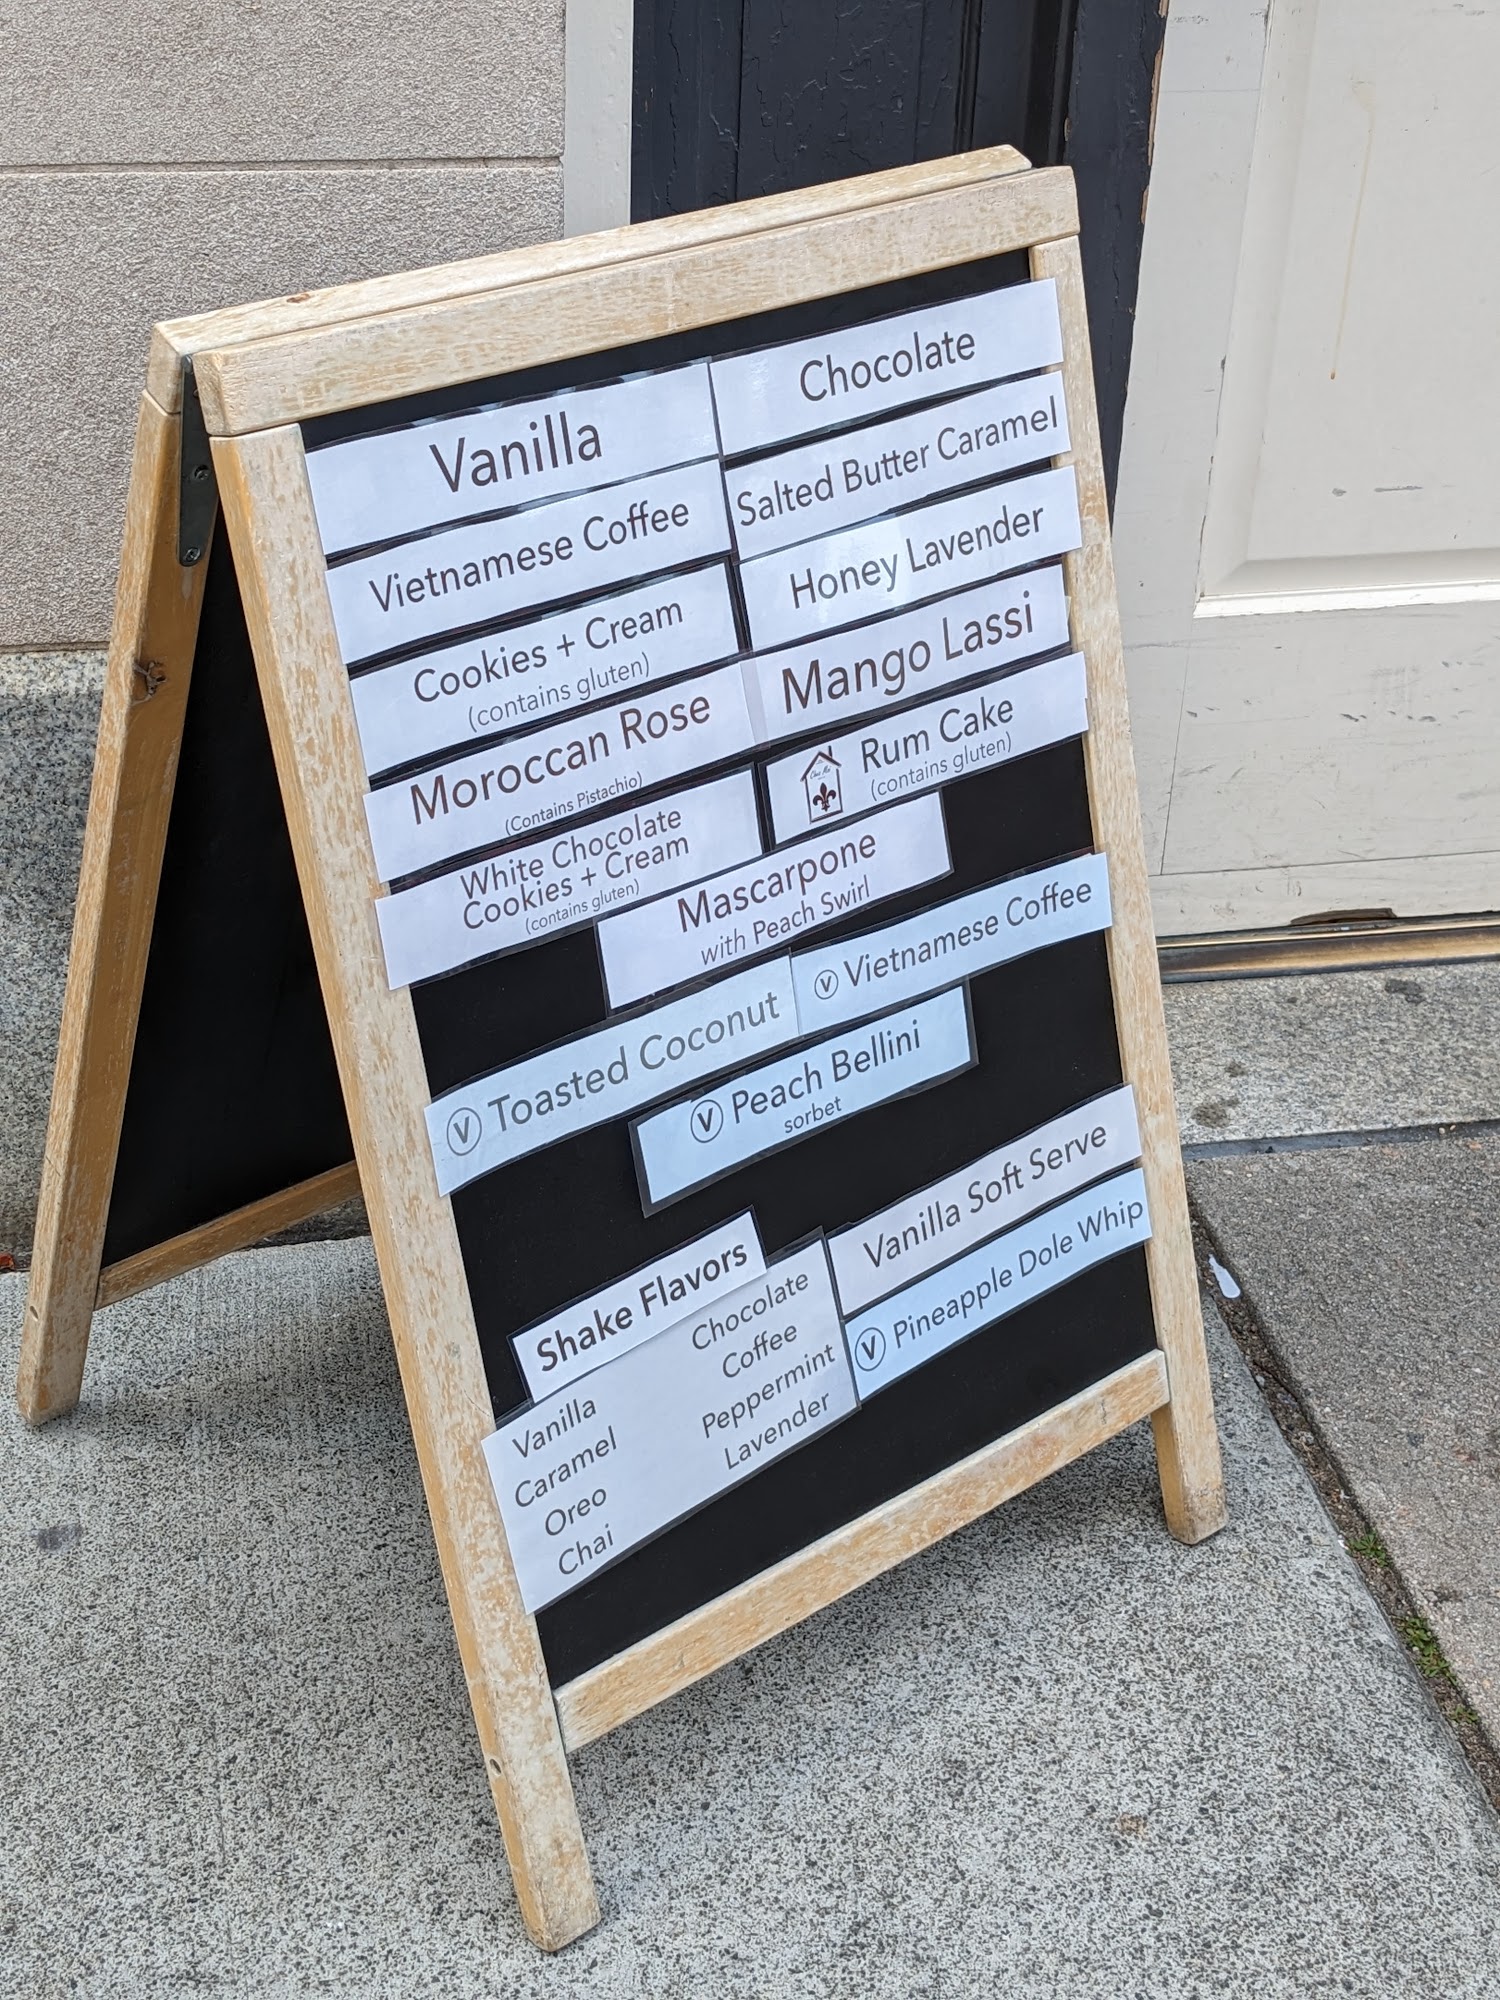 Vanilla
Chocolate
Vietnamese Coffee
Salted Butter Caramel
Cookies + Cream
(contains gluten)
Honey Lavender
Moroccan Rose
(Contains Pistachio)
Mango Lassi
White Chocolate
Cookies + Cream
(contains gluten)
Rum Cake
(contains gluten)
Mascarpone
with Peach Swirl
V Toasted Coconut
V Vietnamese Coffee
V Peach Bellini
sorbet
Vanilla Soft Serve
V Pineapple Dole Whip
Shake Flavors
Vanilla
Caramel
Oreo
Chai
Chocolate
Coffee
Peppermint
Lavender